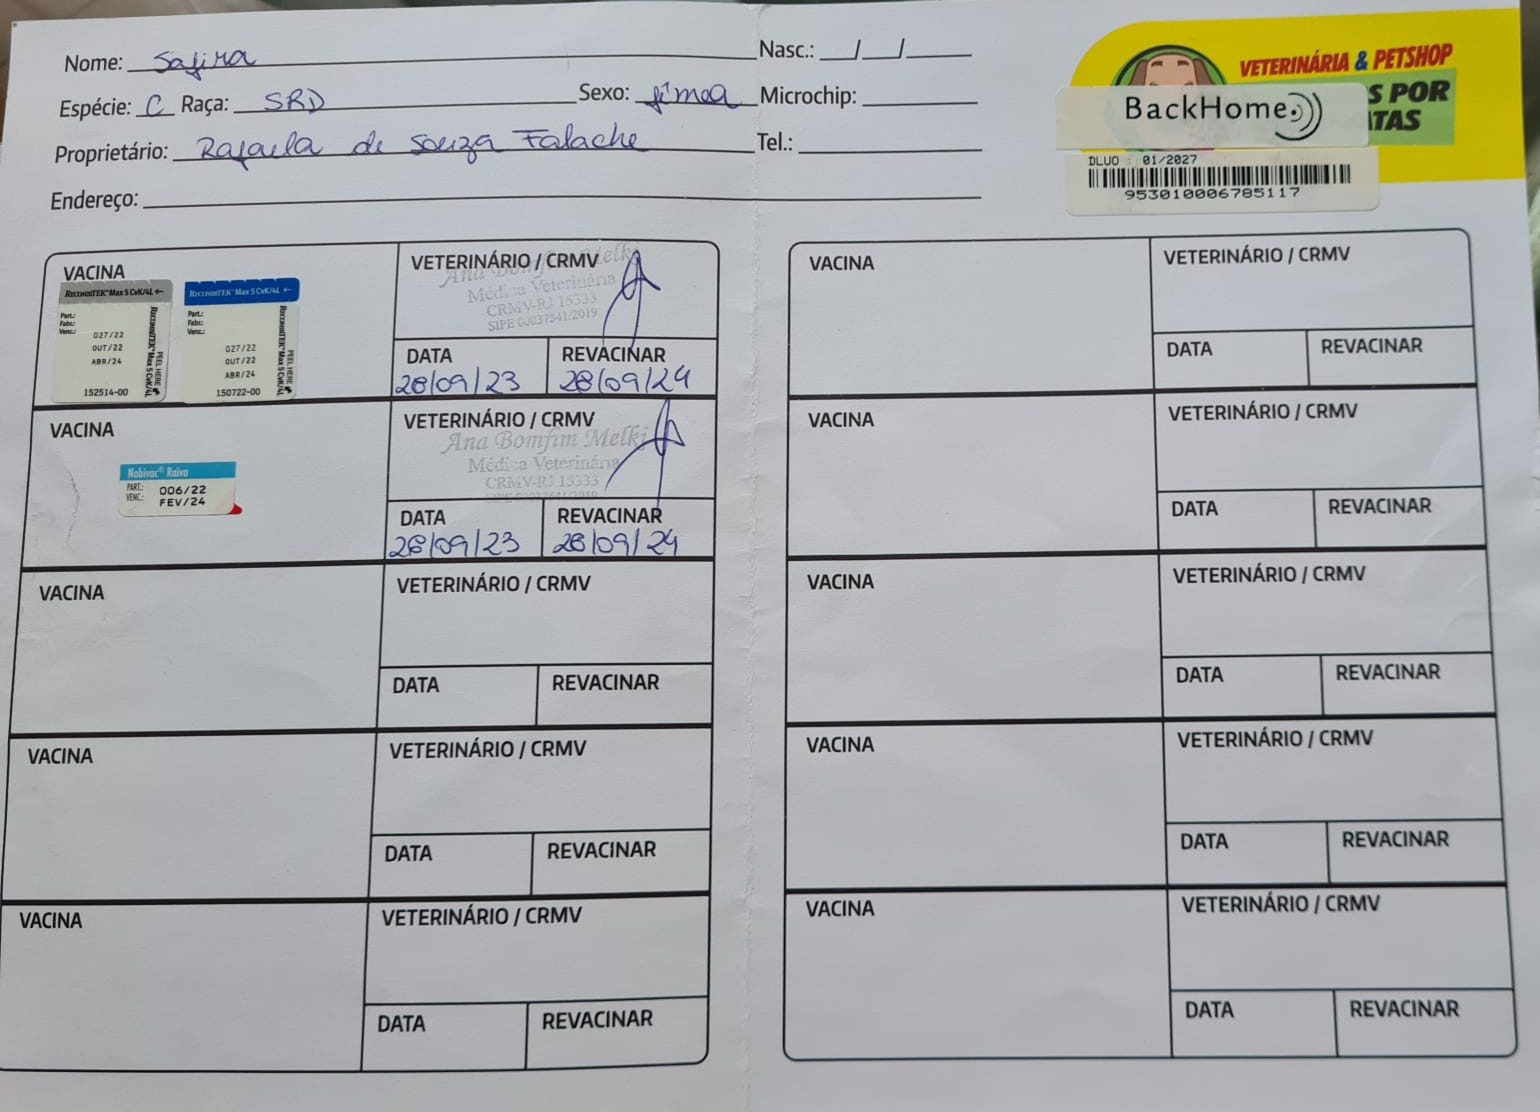 Nome: Safira Nasc.: __/__/____
Espécie: C Raça: SRD Sexo: fêmea Microchip:
Proprietário: Rafaela de Souza Falache Tel.:
Endereço:
VETERINÁRIA & PETSHOP
S POR
ATAS
BackHome
DLUO : 01/2027
953010006785117
VACINA
RECOMBITEK® Max 5 CvK/4L ←
Part.:
Fabr.:
Venc.:
027/22
OUT/22
ABR/24
152514-00
PEEL HERE
RECOMBITEK® Max 5 CvK/4L
RECOMBITEK® Max 5 CvK/4L ←
Part.:
Fabr.:
Venc.:
027/22
OUT/22
ABR/24
150722-00
PEEL HERE
RECOMBITEK® Max 5 CvK/4L
VETERINÁRIO / CRMV
Ana Bomfim Melki
Médica Veterinária
CRMV-RJ 15333
SIPE 00037541/2019
DATA REVACINAR
28/09/23 28/09/24
VACINA
Nobivac® Raiva
PART.: 006/22
VENC.: FEV/24
VETERINÁRIO / CRMV
Ana Bomfim Melki
Médica Veterinária
CRMV-RJ 15333
SIPE 00037541/2019
DATA REVACINAR
28/09/23 28/09/24
VACINA
VETERINÁRIO / CRMV
DATA REVACINAR
VACINA
VETERINÁRIO / CRMV
DATA REVACINAR
VACINA
VETERINÁRIO / CRMV
DATA REVACINAR
VACINA
VETERINÁRIO / CRMV
DATA REVACINAR
VACINA
VETERINÁRIO / CRMV
DATA REVACINAR
VACINA
VETERINÁRIO / CRMV
DATA REVACINAR
VACINA
VETERINÁRIO / CRMV
DATA REVACINAR
VACINA
VETERINÁRIO / CRMV
DATA REVACINAR